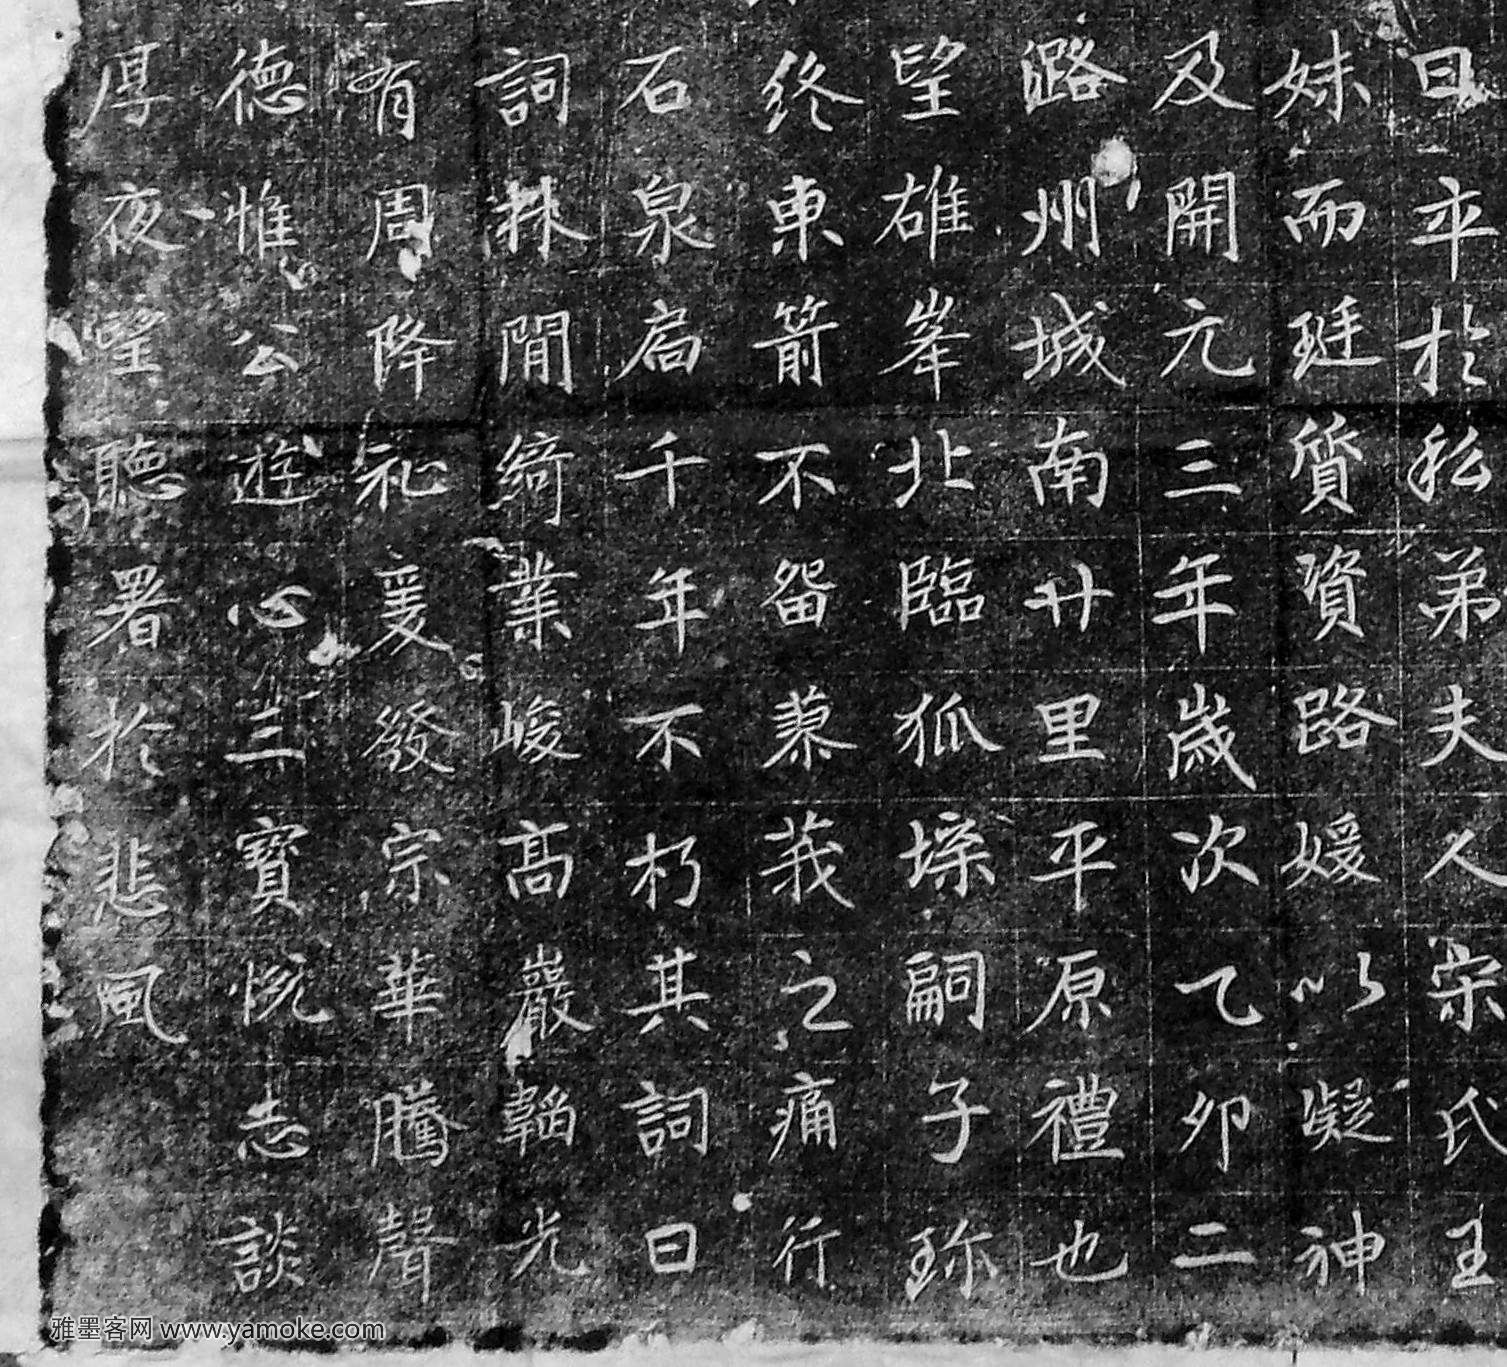 日卒於私弟夫人宋氏王
妹而珽質資路媛以凝神
及開元三年歲次乙卯二
潞州城南廿里平原禮也
望雄峯北臨狐堔嗣子珎
終東箭不留蓼莪之痛行
石泉扃千年不朽其詞曰
詞林閒綺業峻高巖韜光
有周降祉爰發宗華騰聲
德惟公遊心三寶悦志談
厚夜壟聽署於悲風
雅墨客网 www.yamoke.com